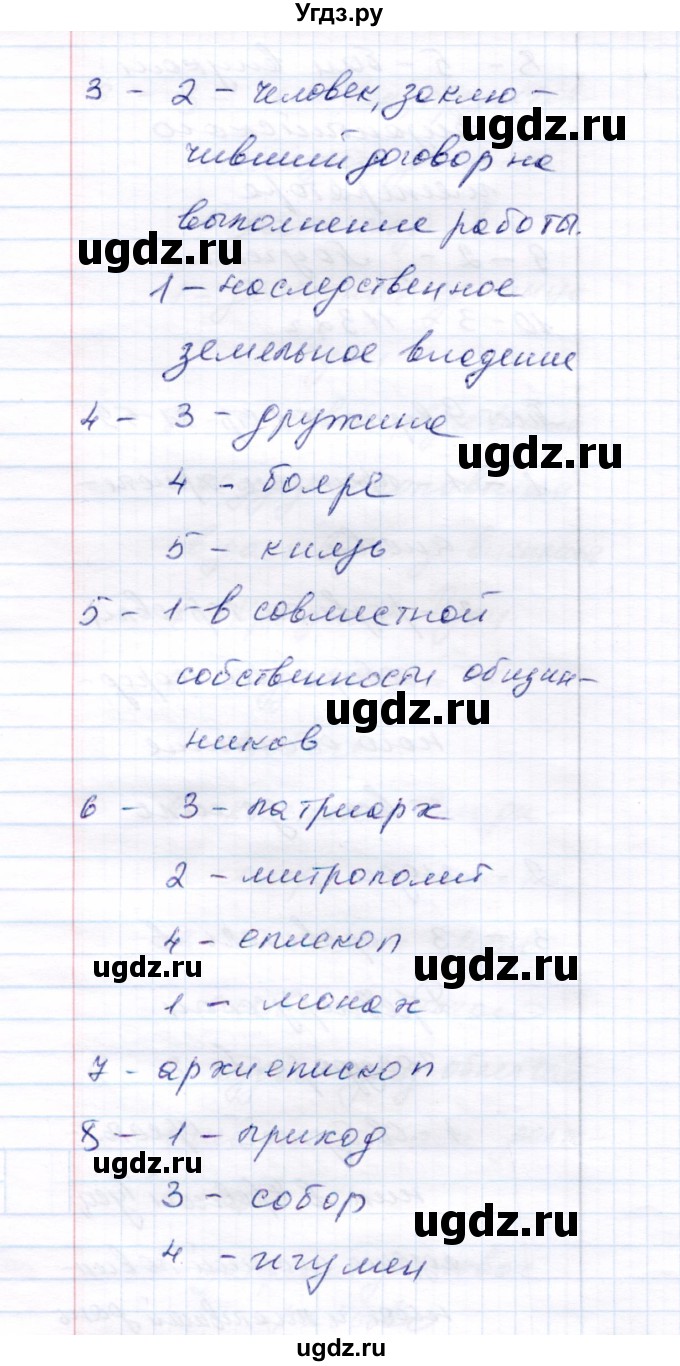 Угдз.ру
3 - 2 - человек, заклю-
ugdz.ru
чивший договор на
выполнение работы.
ugdz.ru
1 - наследственное
земельное владение
4 - 3 - дружина
ugdz.ru
4 - бояре
5 - князь
5 - 1 - в совместной
собственности общин-
ugdz.ru
ников
6 - 3 - патриарх
2 - митрополит
4 - епископ
ugdz.ru ugdz.ru
1 - монах
7 - архиепископ
8 - 1 - приход
ugdz.ru
3 - собор
ugdz.ru
4 - игумен
ugdz.ru